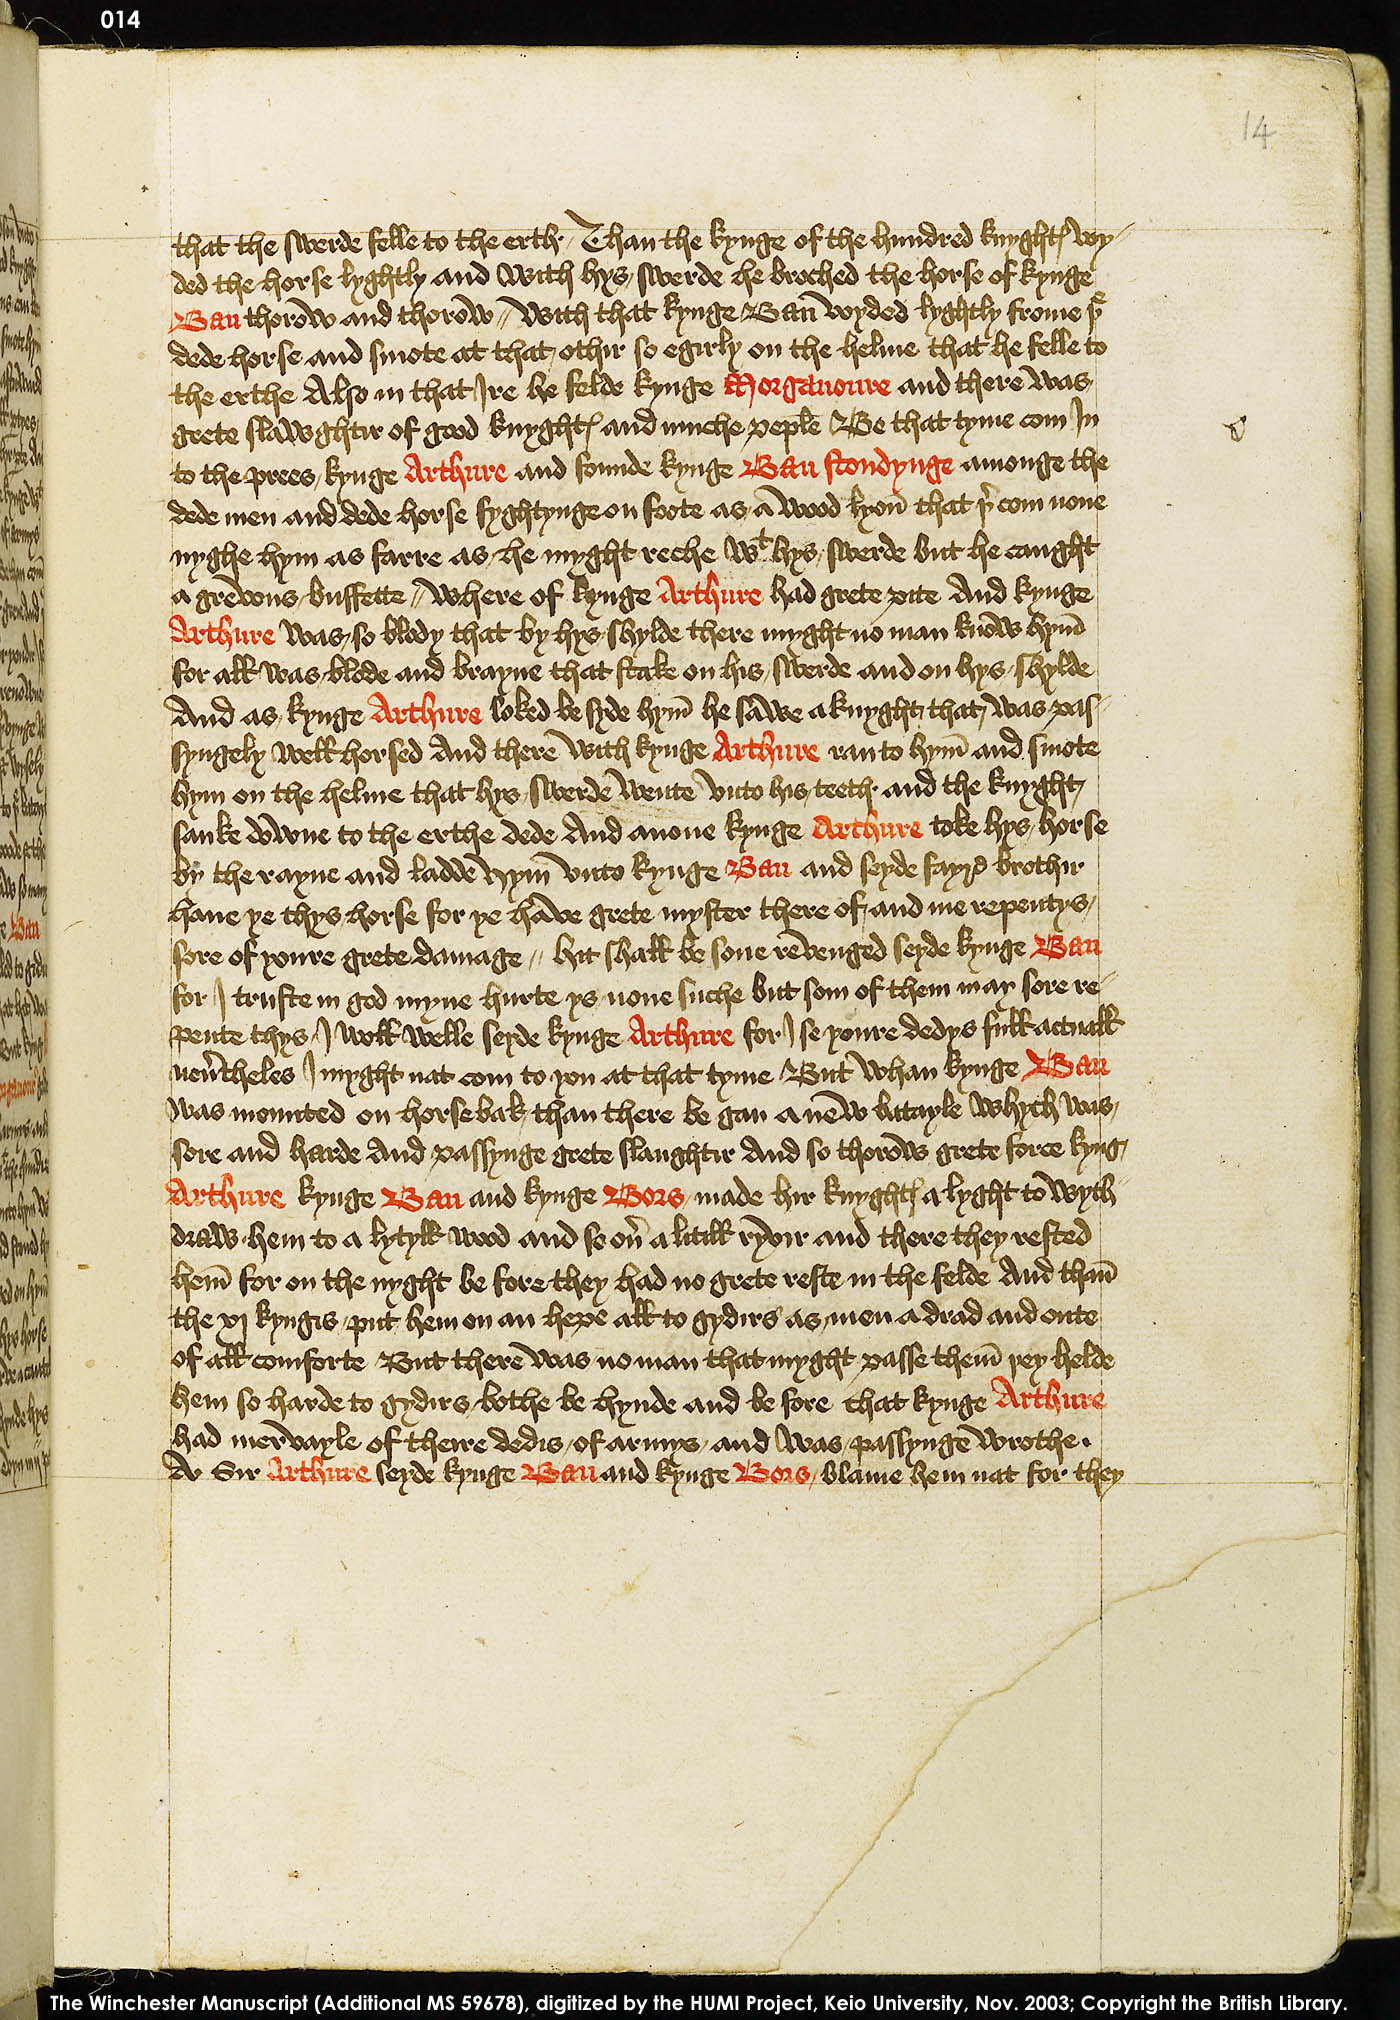 014
14
that the swerde felle to the erth / Than the kynge of the hundred knyghtꝭ voy-
ded the horse lyghtly and with hys swerde he broched the horse of kynge
Ban thorow and thorow // with that kynge Ban voyded lyghtly frome þe
dede horse and smote at that othir so egirly on the helme that he felle to
the erthe Also in that Ire he felde kynge Morganoure and there was
grete slawghtir of good knyghtꝭ and muche peple Be that tyme com In
to the prees kynge Arthure and founde kynge Ban stondynge amonge the
dede men and dede horse fyghtynge on foote as a wood lyon that þr com none
nyghe hym as farre as he myght reche wt hys swerde but he caught
a grevous buffette // where of kynge Arthure had grete pite And kynge
Arthure was so blody that by hys shylde there myght no man know hym
for all was blode and brayne that stake on his swerde and on hys shylde
And as kynge Arthure loked be syde hym he sawe a knyght that was pas-
syngely well horsed And there with kynge Arthure ran to hym and smote
hym on the helme that hys swerde wente vnto his teeth and the knyght
sanke downe to the erthe dede And anone kynge Arthure toke hys horse
by the rayne and ladde hym vnto kynge Ban and seyde fayre brothir
have ye thys horse for ye have grete myster there of and me repentys
sore of youre grete damage // hit shall be sone revenged seyde kynge Ban
for I truste in god myne hurte ys none suche but som of them may sore re-
pente thys / I woll welle seyde kynge Arthure for I se youre dedys full actuall
nev̉theles I myght nat com to you at that tyme But whan kynge Ban
was mounted on horsebak than there be gan a new batayle whych was
sore and harde And passynge grete slaughtir And so thorow grete force kyng
Arthure kynge Ban and kynge Bors made hir knyghtꝭ a lyght to wyth-
draw hem to a lytyll wood and so ov̉ a litill ryvir and there they rested
hem for on the nyght be fore they had no grete reste in the felde And than
the xj kyngis put hem on an hepe all to gydirs as men adrad and oute
of all comforte But there was no man that myght passe them þey helde
hem so harde to gydirs bothe be hynde and be fore that kynge Arthure
had mervayle of theire dedis of armys and was passynge wrothe .
A Sir Arthure seyde kynge Ban and kynge Bors / blame hem nat for they
The Winchester Manuscript (Additional MS 59678), digitized by the HUMI Project, Keio University, Nov. 2003; Copyright the British Library.